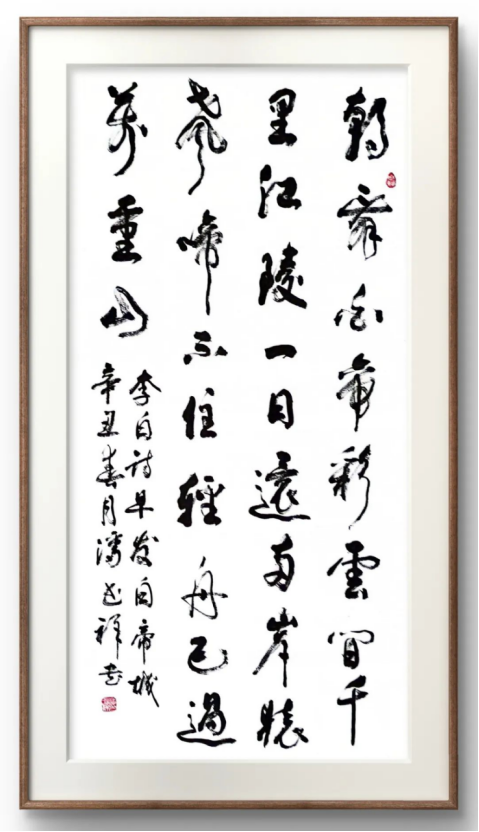 朝辭白帝彩雲間千
里江陵一日還兩岸猿
聲啼不住輕舟已過
萬重山
李白詩早發白帝城
辛丑春月潘祥書